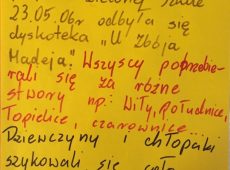 zieloną szkołę
23.05.06r odbyła się
dyskoteka "U Zbója
Madeja." Wszyscy poprzebie-
rali się za różne
stwory np: Wiły, Południce,
Topielice, czarownice...
Dziewczyny i chłopaki
szykowali się